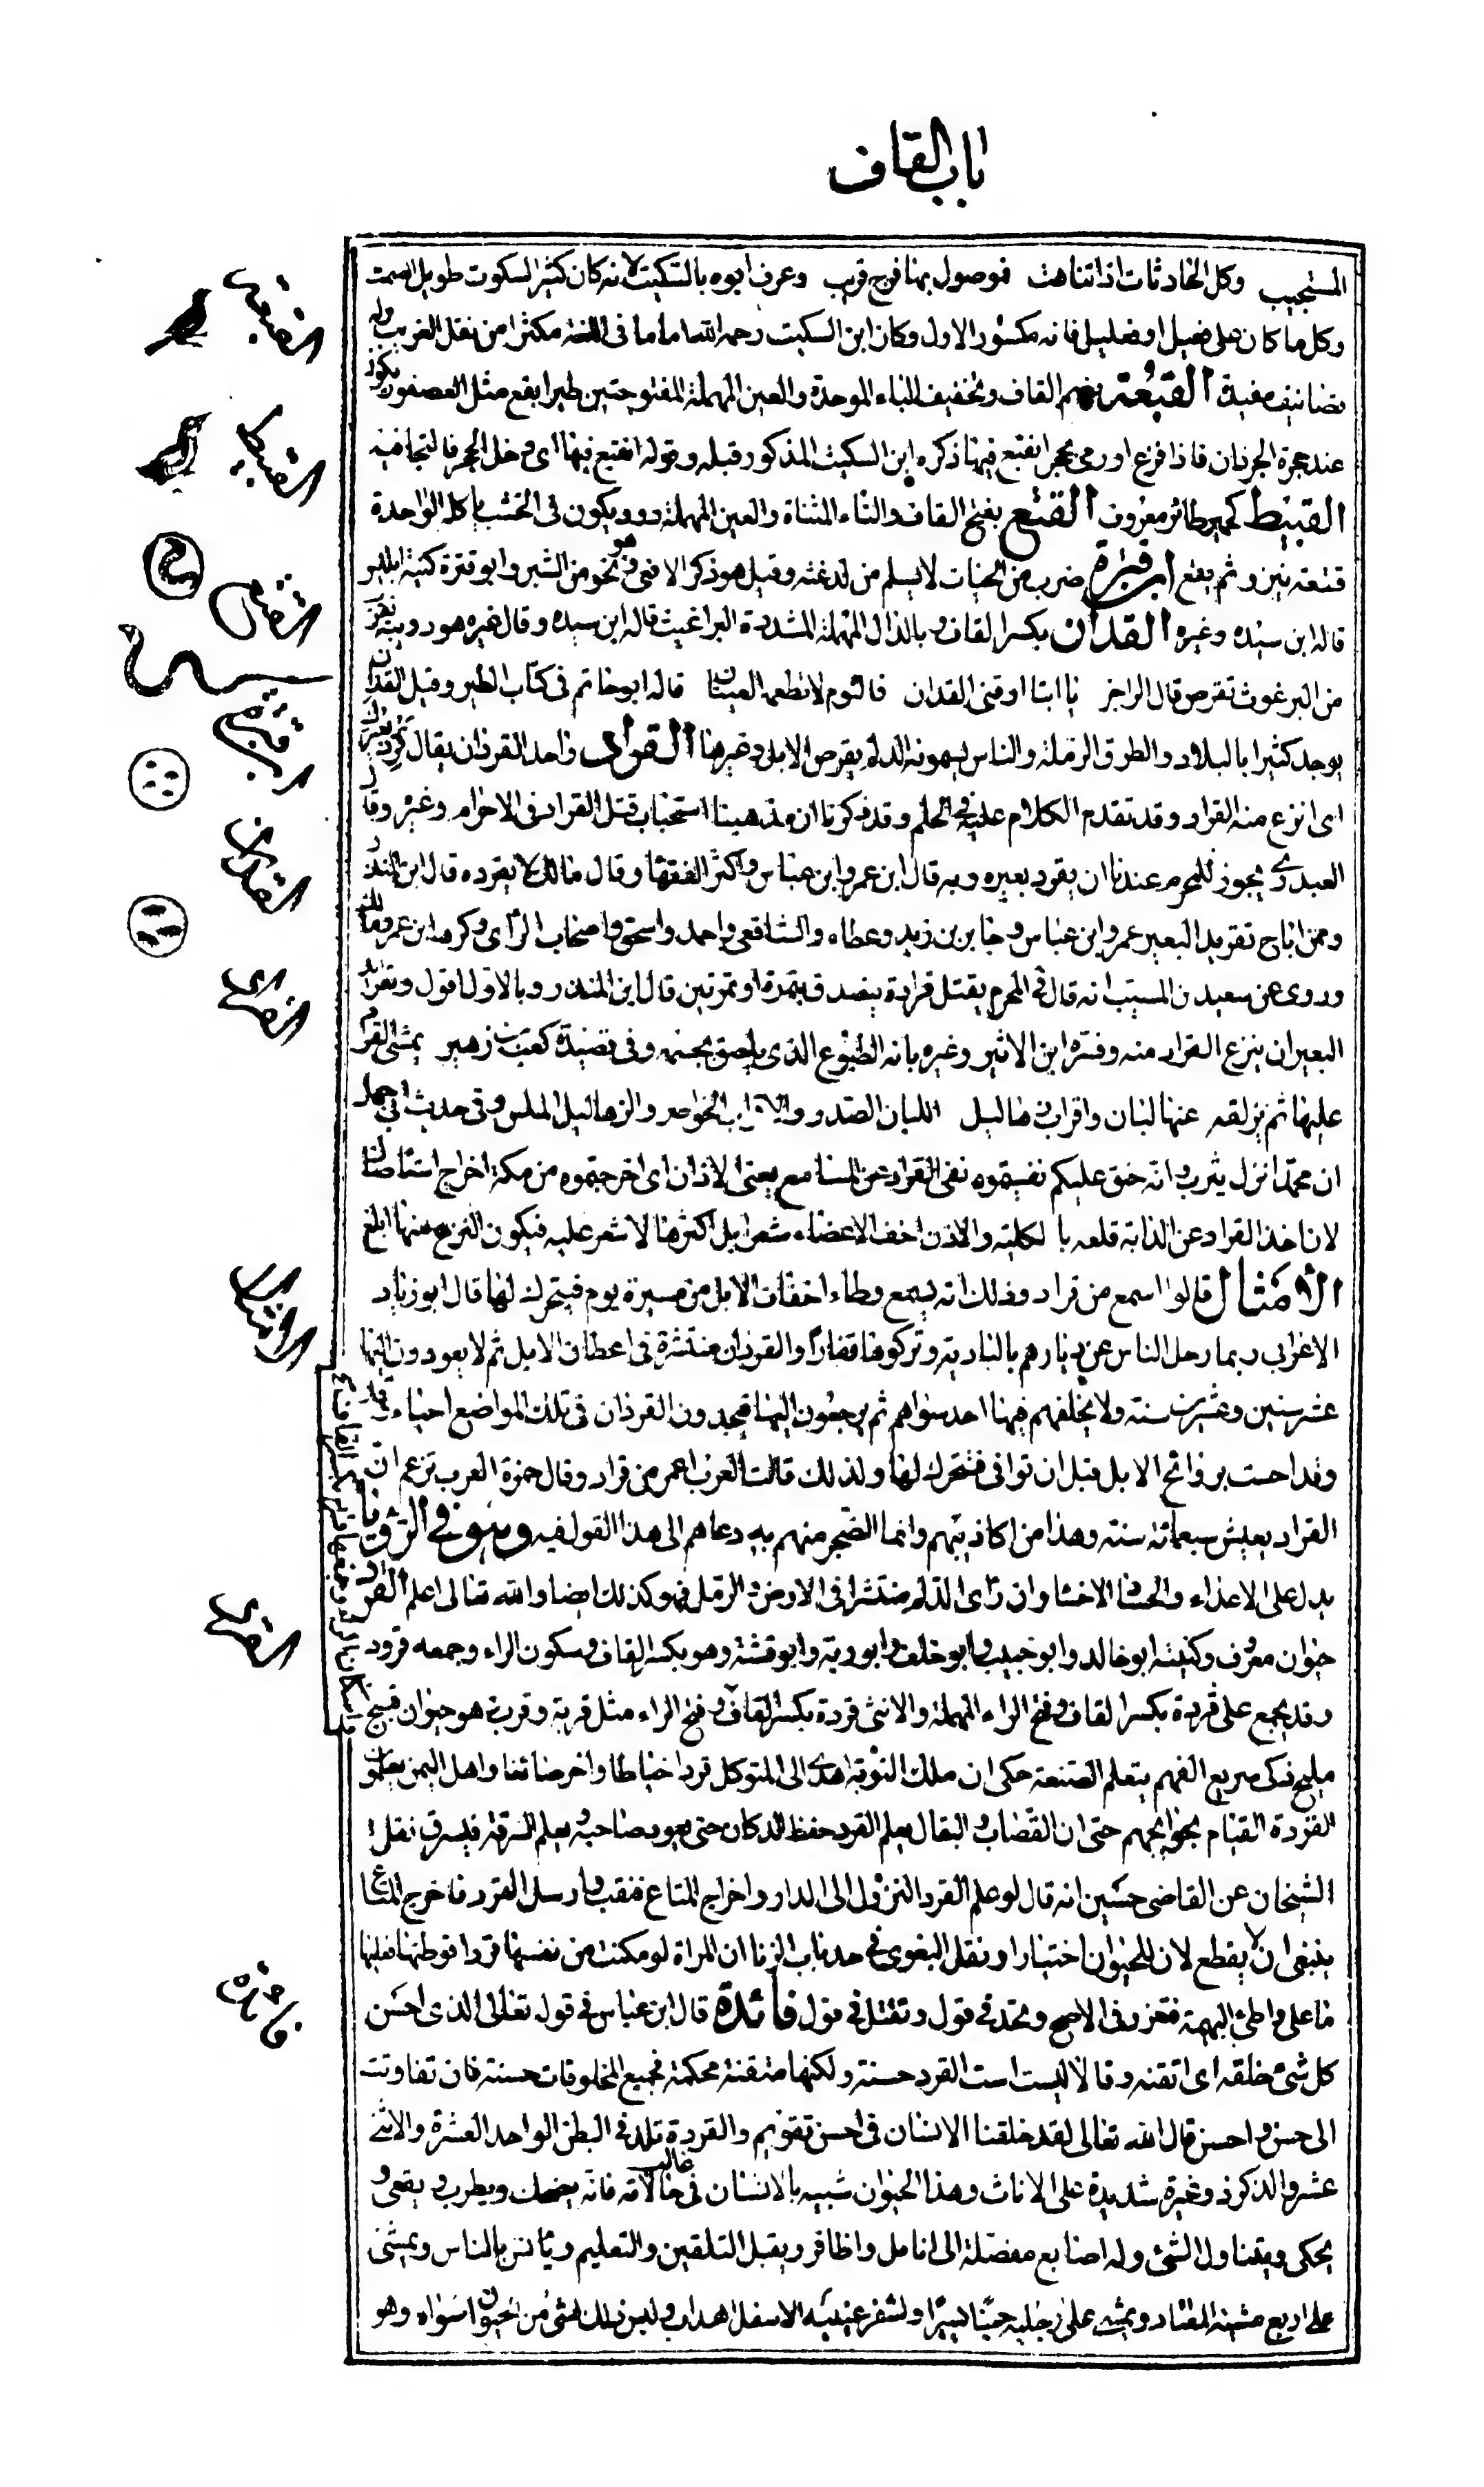 باب القاف
المستجيب وكل الحادثات اذا تناهت فموصول بها فرج قريب وعرف ابوه بالسكيت لانه كان كثير السكوت طويل الصمت
وكل ما كان على فعيل او فعليل فانه مكسور الاول وكان ابن السكيت رحمه الله اماما فى اللغة مكثرا من نقل الغريب وله
تصانيف مفيدة القبعة بضم القاف وتخفيف الباء الموحدة والعين المهملة المفتوحتين طير ابقع مثل العصفور يكون
عند حجرة الجرذان فاذا فزع او رمى بحجر انقبع فيها ذكره ابن السكيت المذكور قبله وقوله انقبع فيها اى دخل الجحر فالتجا فيه
القبيط كحمير طائر معروف القتع بفتح القاف والتاء المثناة والعين المهملة دود يكون فى الخشب ياكله الواحدة
قتعة ينزو ثم يقع ابن قترة ضرب من الحيات لا يسلم من لدغته وقيل هو ذكر الافعى وهو نحو من الشبر وابو قترة كنية ابليس
قاله ابن سيده وغيره القدان بكسر القاف وبالذال المهملة المشددة البراغيث قاله ابن سيده وقال غيره هو دويبة تقرب
من البرغوث تقرص قال الراجز يا ابتا ارقنى القدان فالنوم لا تطعمه العينان قاله ابو حاتم فى كتاب الطير وقيل القدان
يوجد كثيرا بالبلاد والطرق الرملة والناس يسمونه الدلم يقرص الابل وغيرها القراد واحد القردان يقال قرد بعيرك
اى انزع منه القراد وقد تقدم الكلام عليه فى الحلم وقد ذكرنا ان مذهبنا استحباب قتل القراد فى الاحرام وغيره وقال
العبدرى يجوز للمحرم عندنا ان يقرد بعيره وبه قال ابن عمر وابن عباس واكثر الفقها وقال مالك لا يقرده قال ابن المنذر
وممن اباح تقريد البعير عمر وابن عباس وجابر بن زيد وعطاء والشافعى واحمد واسحق واصحاب الراى وكرهه ابن عمر ومالك
وروى عن سعيد بن المسيب انه قال فى المحرم يقتل قرادة يتصدق بتمرة او تمرتين قال ابن المنذر وبالاول اقول وتقريد
البعير ان ينزع القراد منه وفسره ابن الاثير وغيره بانه الطبوع الذى يلصق بجسمه وفى قصيدة كعب بن زهير يمشى القراد
عليها ثم يزلقه عنها لبان واقراب زهاليل اللبان الصدر والاقراب الخواصر والزهاليل الملس وفى حديث ابى جهل
ان محمدا نزل يثرب وانه حنق عليكم نفيتموه نفى القراد عن المسامع يعنى الاذان اى اخرجتموه من مكة اخراج استئصال
لان اخذ القراد عن الدابة قلعه بالكلية والاذن اخف الاعضاء شعرا بل اكثرها لا شعر عليه فيكون النزع منها ابلغ
الامثال قالوا اسمع من قراد وذلك انه يسمع وطاء اخفاف الابل من مسيرة يوم فيتحرك لها قال ابو زياد
الاعرابى ربما رحل الناس عن ديارهم بالبادية وتركوها قفارا والقردان منتثرة فى اعطان الابل ثم لا يعودون اليها
عشر سنين وعشرين سنة ولا يخلفهم فيها احد سواهم ثم يرجعون اليها فيجدون القردان فى تلك المواضع احياء
وقد احست بروائح الابل قبل ان توافى فتتحرك لها ولذلك قالت العرب اعمر من قراد وقال حمزة العرب تزعم ان
القراد يعيش سبعمائة سنة وهذا من اكاذيبهم وانما الضجر منهم به دعاهم الى هذا القول فيه وهو فى الرؤيا
يدل على الاعداء والحسّاد الاخسّا وان راى الدلم منتشرا فى الارض والرمل فهو كذلك ايضا والله تعالى اعلم القرد
حيوان معروف وكنيته ابو خالد وابو حبيب وابو خلف وابو ربة وابو قشة وهو بكسر القاف وسكون الراء وجمعه قرود
وقد يجمع على قردة بكسر القاف وفتح الراء المهملة والانثى قردة بكسر القاف وفتح الراء مثل قربة وقرب هو حيوان قبيح
مليح ذكى سريع الفهم يتعلم الصنعة حكى ان ملك النوبة اهدى الى المتوكل قردا خياطا واخر صائغا واهل اليمن يعلمون
القردة القيام بحوائجهم حتى ان القصاب والبقال يعلم القرد حفظ الدكان حتى يعود صاحبه ويعلم السرقة فيسرق نقل
الشيخان عن القاضى حسين انه قال لو علم القرد النزول الى الدار واخراج المتاع فنقب وارسل القرد فاخرج المتاع
ينبغى ان لا يقطع لان للحيوان اختيارا ونقل البغوى فى حد باب الزنا ان المراة لو مكنت من نفسها قردا فوطئها فعليها
ما على واطئ البهيمة فتعزر فى الاصح وتحد فى قول وتقتل فى قول فائدة قال ابن عباس فى قوله تعالى الذى احسن
كل شئ خلقه اى اتقنه وقال ليست است القرد حسنة ولكنها متقنة محكمة فجميع المخلوقات حسنة فان تفاوتت
الى حسن واحسن قال الله تعالى لقد خلقنا الانسان فى احسن تقويم والقردة تلد فى البطن الواحد العشرة والاثنى
عشر والذكر ذو غيرة شديدة على الاناث وهذا الحيوان شبيه بالانسان فى غالب حالاته فانه يضحك ويطرب ويقعى و
يحكى ويتناول الشئ وله اصابع مفصلة الى انامل واظافر ويقبل التلقين والتعليم ويانس بالناس ويمشى
على اربع مشيه المعتاد ويمشى على رجليه حينا يسيرا ولشفر عينيه الاسفل اهداب وليس ذلك لشئ من الحيوان سواه وهو
القبعة
القبيط
القتع
ابن قترة
القدان
القراد
الامثال
القرد
فائدة